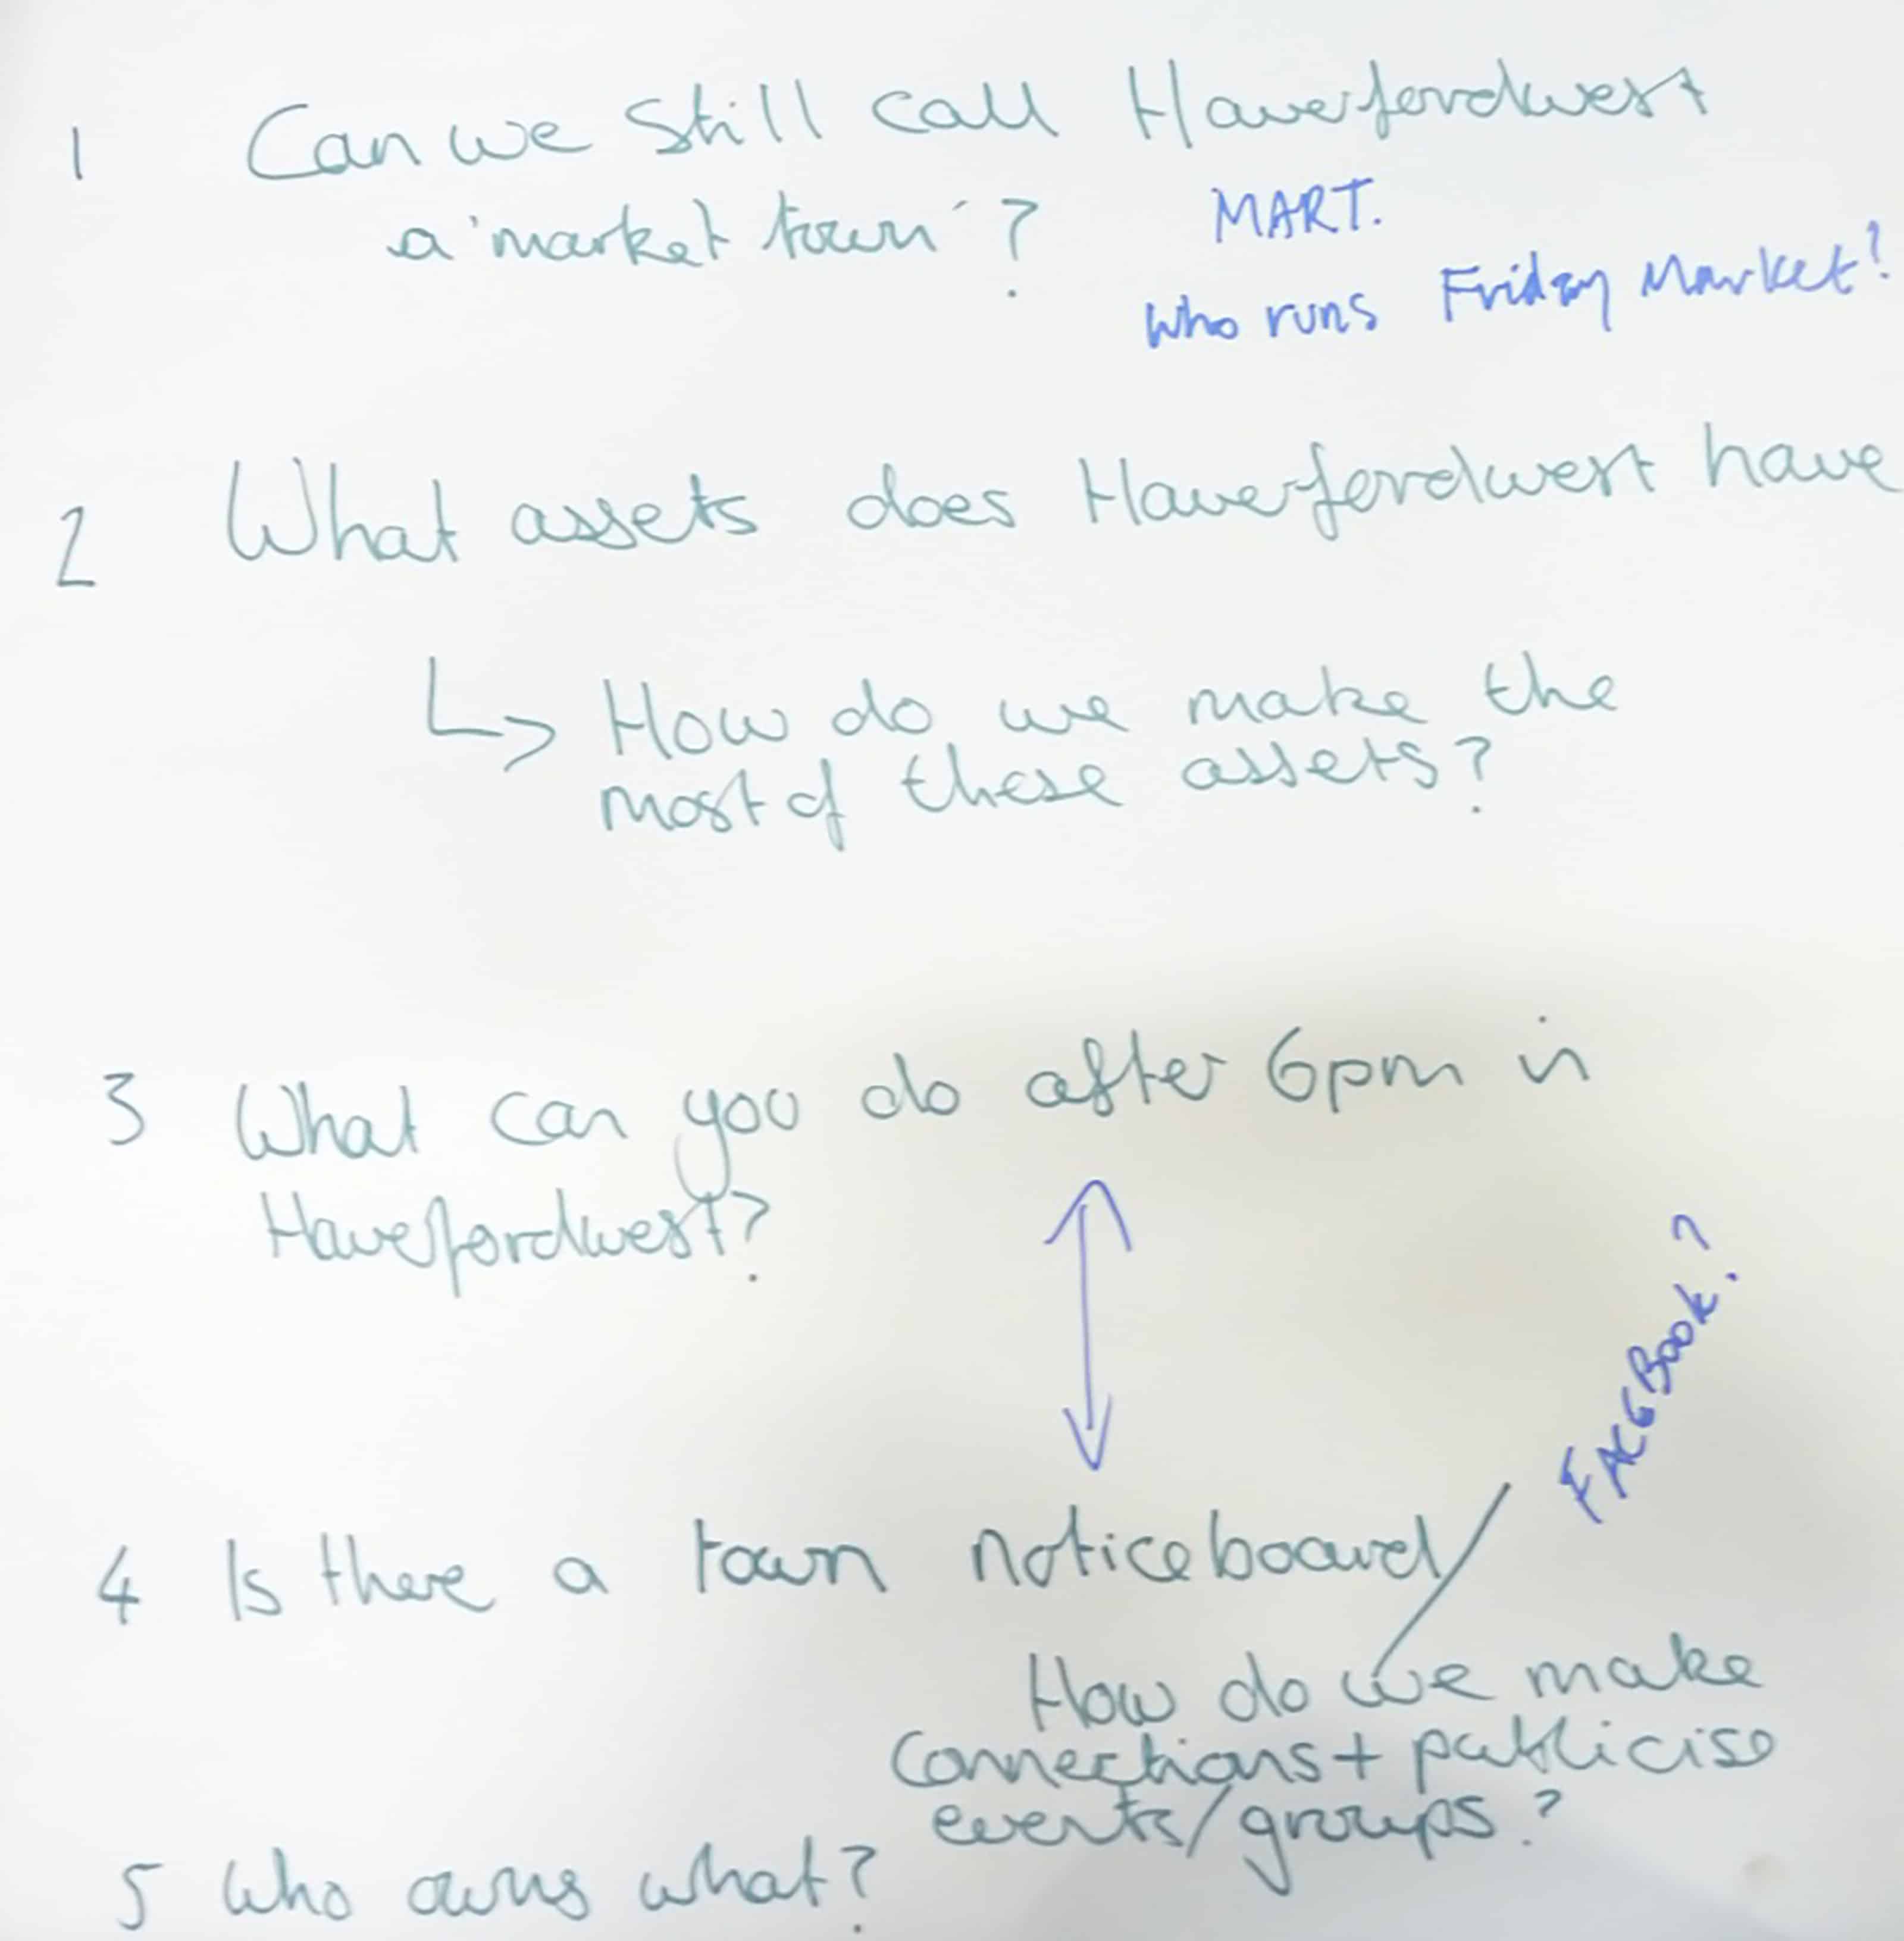 1 Can we still call Haverfordwest
a 'market town'?
MART.
Who runs Friday Market?
2 What assets does Haverfordwest have
↳ How do we make the
most of these assets?
3 What can you do after 6pm in
Haverfordwest?
FACEBOOK?
4 Is there a town noticeboard/
How do we make
connections + publicise
events/groups?
5 Who owns what?